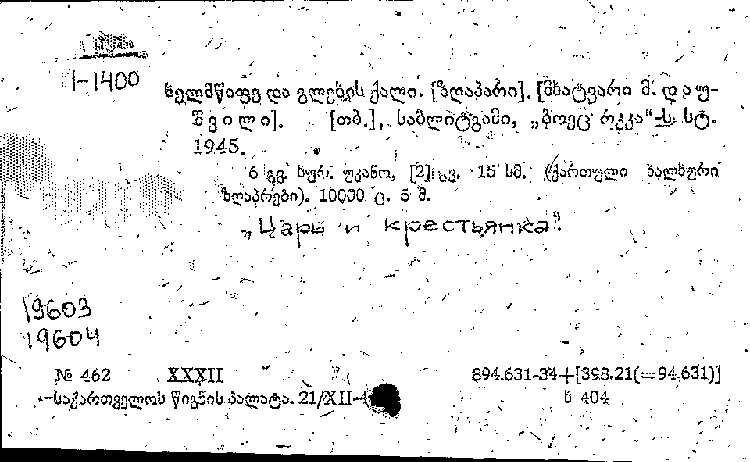 I-1400
ხელმწიფე და გლეხის ქალი. [ზღაპარი]. [მხატვარი მ. დაუ-
შვილი]. [თბ.], საბლიტგამი, „პოეც რკკა“-ს სტ.
1945.
6 გვ. სურ. უკანო, [2] გვ. 15 სმ. (ქართული ხალხური
ზღაპრები). 10000 ც. 5 მ.
„Царь и крестьянка“.
19603
19604
№ 462 XXXII 894.631-34+[398.21(=94.631)]
საქართველოს წიგნის პალატა. 21/XII-4 ხ 404